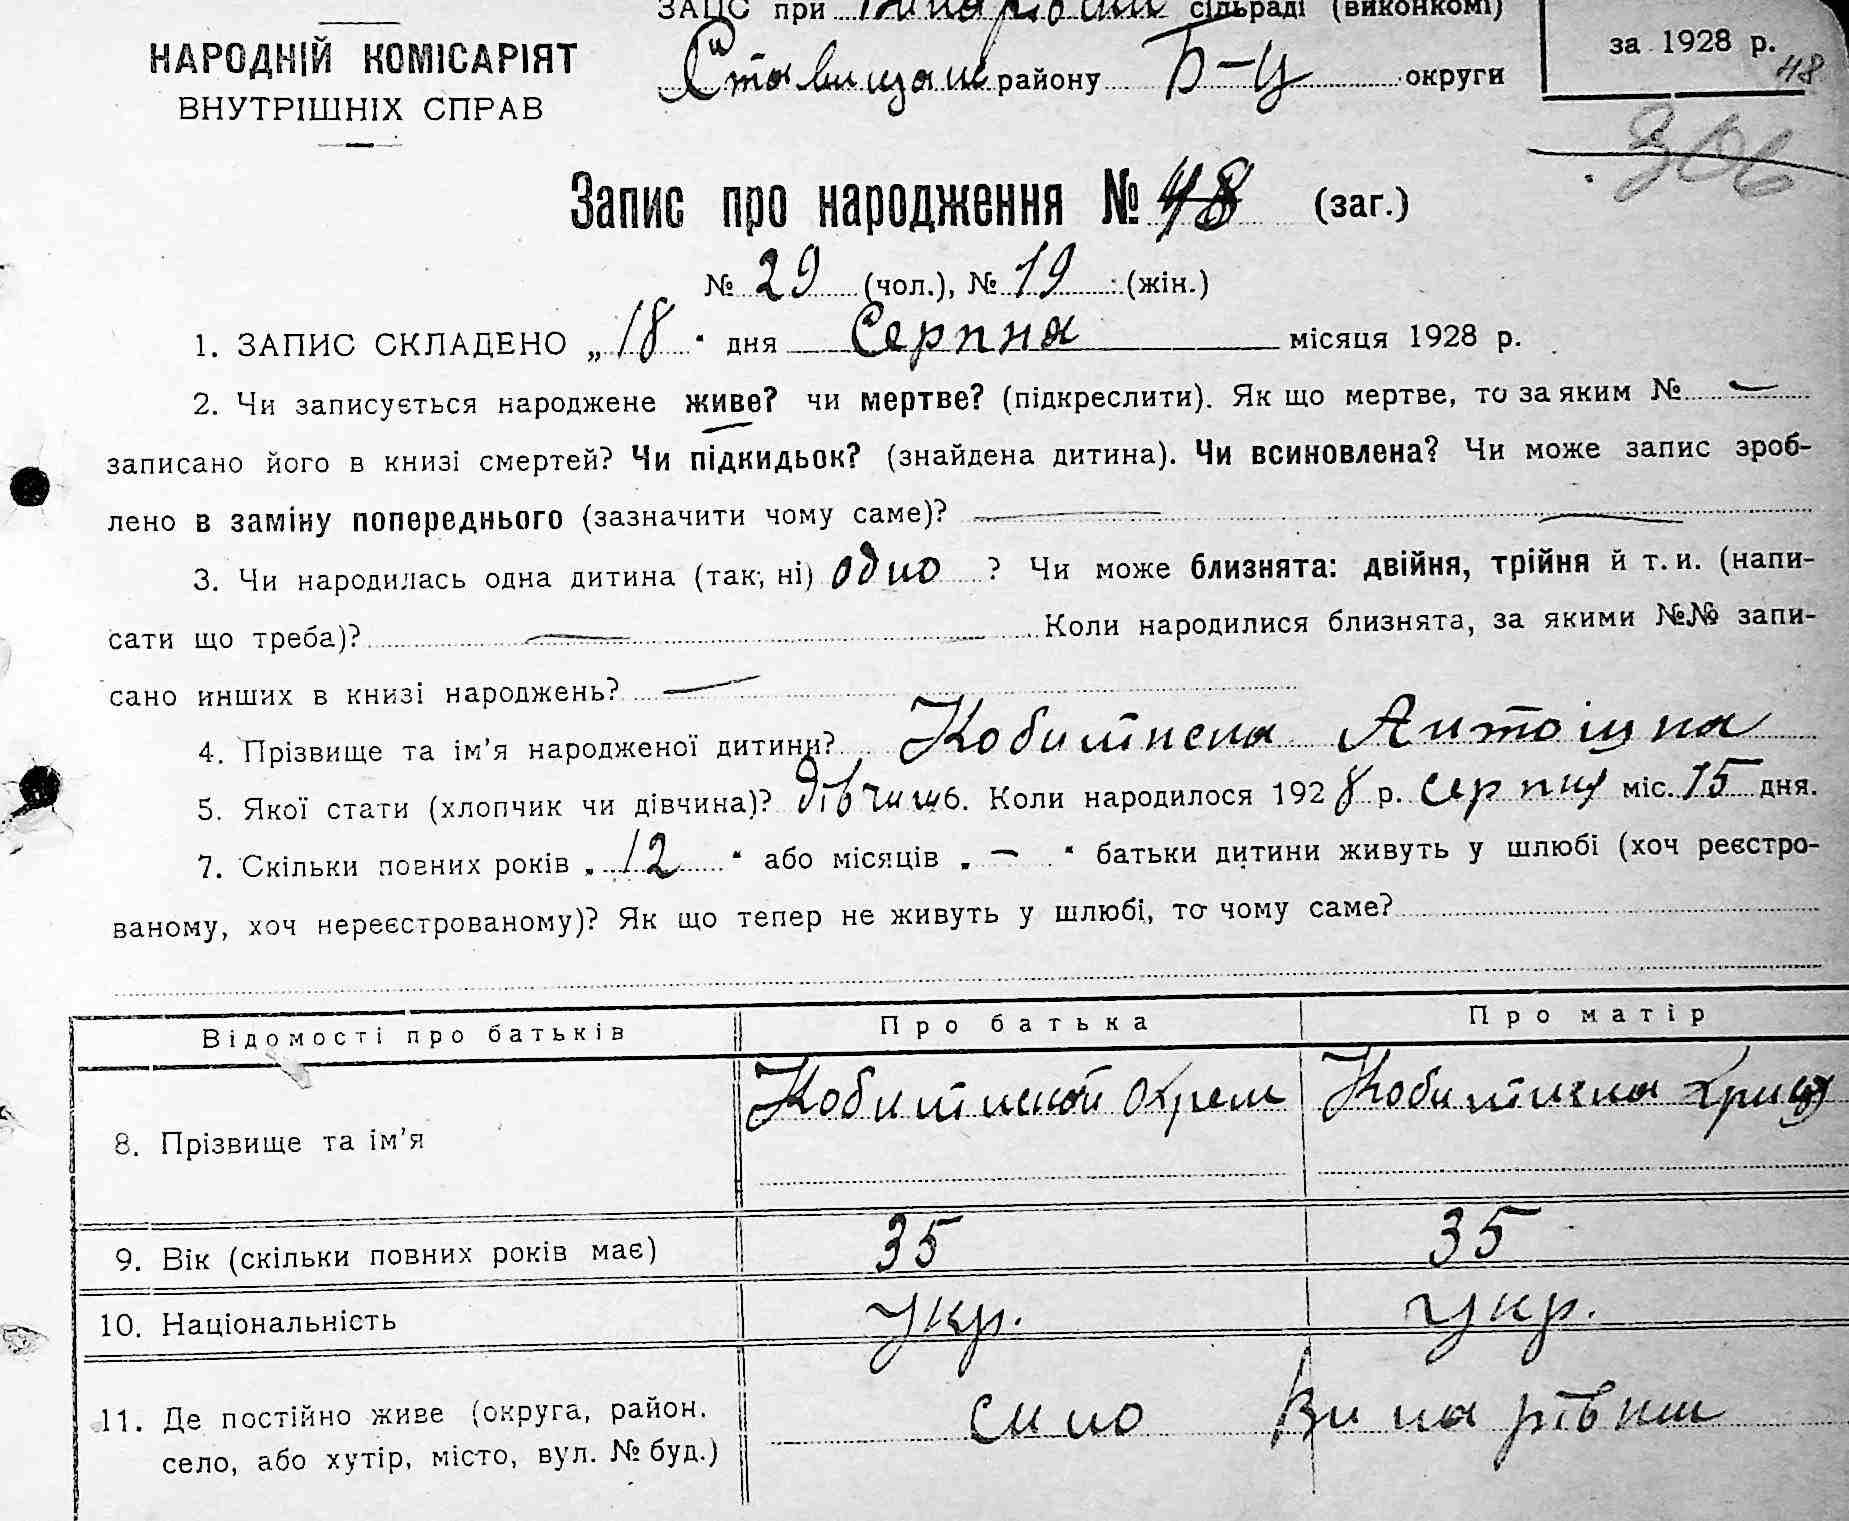 ЗАЦС при Винарівській сільраді (виконкомі)
НАРОДНІЙ КОМІСАРІЯТ
ВНУТРІШНІХ СПРАВ
Ставищан району Б-Ц округи
за 1928 р.
48
306
Запис про народження № 48 (заг.)
№ 29 (чол.), № 19 (жін.)
1. ЗАПИС СКЛАДЕНО „18“ дня Серпня місяця 1928 р.
2. Чи записується народжене живе? чи мертве? (підкреслити). Як що мертве, то за яким № —
записано його в книзі смертей? Чи підкидьок? (знайдена дитина). Чи всиновлена? Чи може запис зроб-
лено в заміну попереднього (зазначити чому саме)? —
3. Чи народилась одна дитина (так, ні) одно ? Чи може близнята: двійня, трійня й т. и. (напи-
сати що треба)? — Коли народилися близнята, за якими №№ запи-
сано инших в книзі народжень? —
4. Прізвище та ім’я народженої дитини?
5. Якої стати (хлопчик чи дівчина)? дівчин 6. Коли народилося 1928 р. серпня міс. 15 дня.
7. Скільки повних років „12“ або місяців „—“ батьки дитини живуть у шлюбі (хоч реєстро-
ваному, хоч нереєстрованому)? Як що тепер не живуть у шлюбі, то чому саме?
Відомості про батьків Про батька Про матір
8. Прізвище та ім’я
9. Вік (скільки повних років має) 35 35
10. Національність Укр. Укр.
11. Де постійно живе (округа, район.
село, або хутір, місто, вул. № буд.) село Винарівка